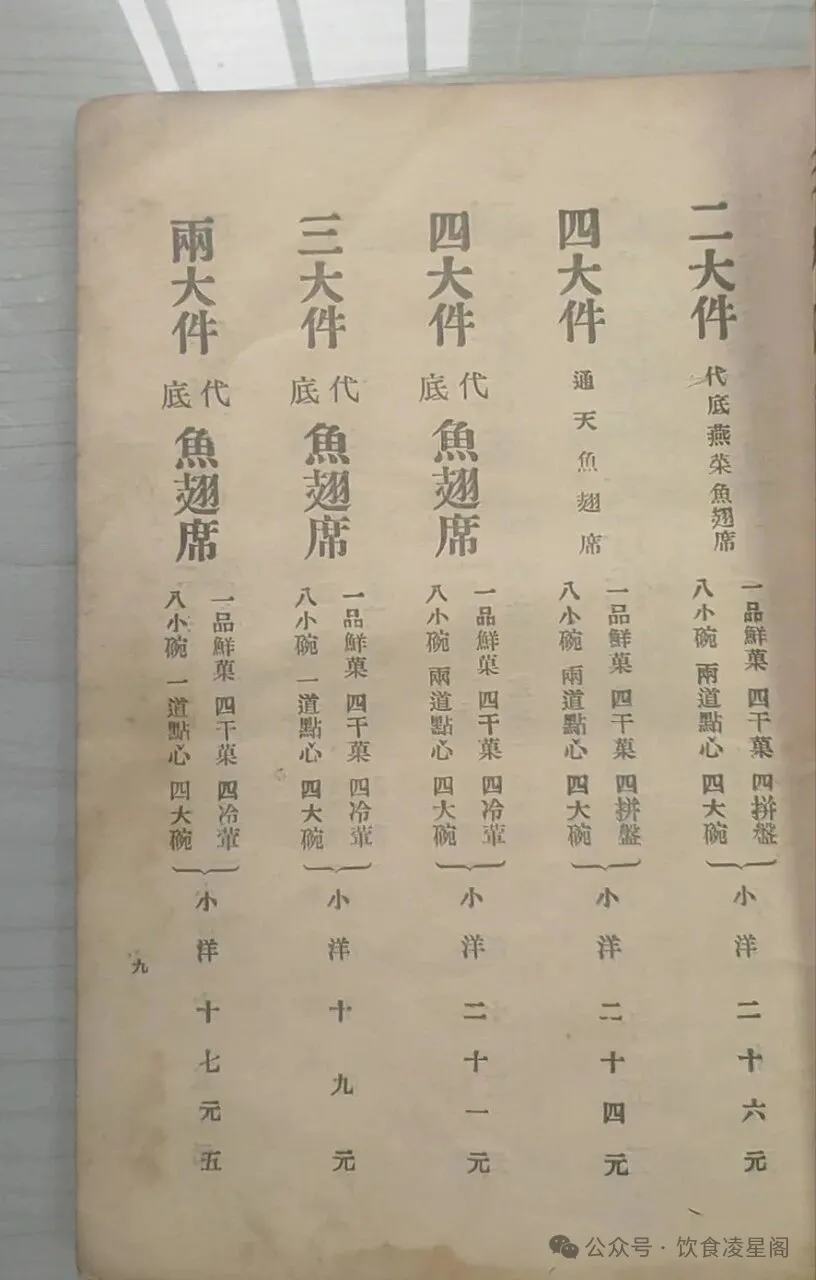 二大件 代底燕菜魚翅席
一品鮮菓 四干菓 四拼盤
八小碗 兩道點心 四大碗
小洋二十六元
四大件 通天魚翅席
一品鮮菓 四干菓 四拼盤
八小碗 兩道點心 四大碗
小洋二十四元
四大件 代底 魚翅席
一品鮮菓 四干菓 四冷葷
八小碗 兩道點心 四大碗
小洋二十一元
三大件 代底 魚翅席
一品鮮菓 四干菓 四冷葷
八小碗 一道點心 四大碗
小洋十九元
兩大件 代底 魚翅席
一品鮮菓 四干菓 四冷葷
八小碗 一道點心 四大碗
小洋十七元五
九
公众号·饮食凌星阁